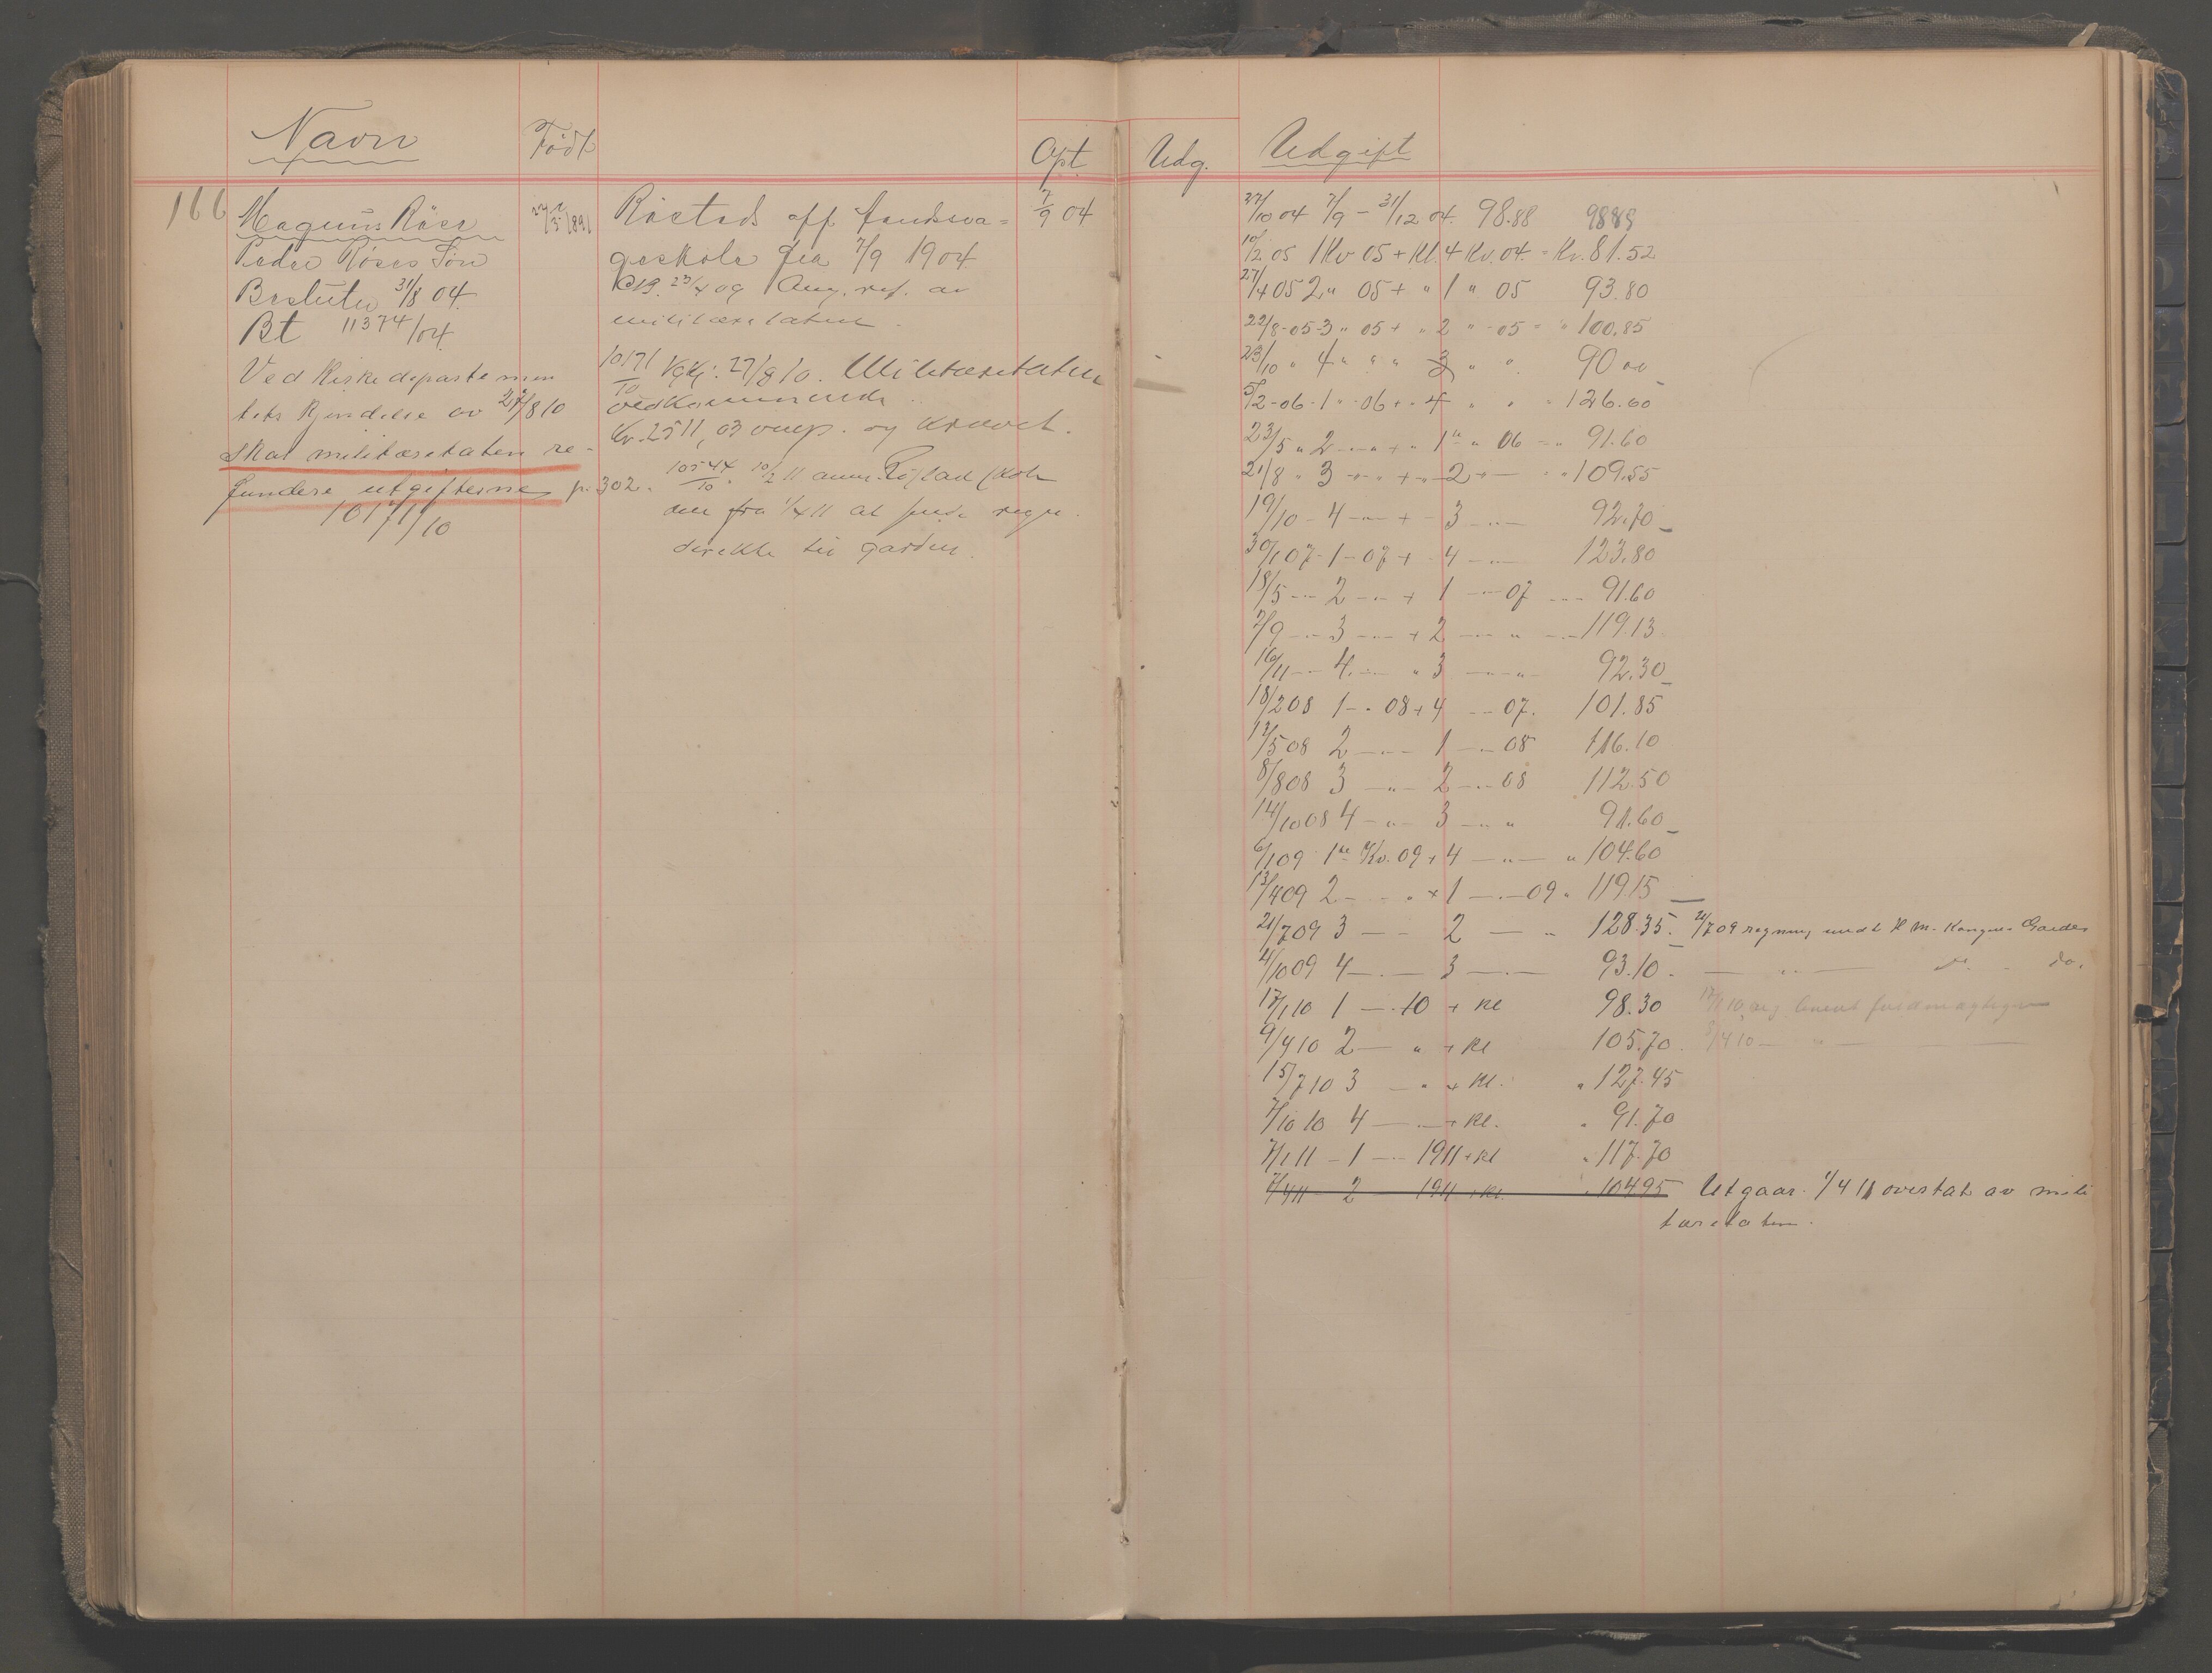 Navn
Født
Opt.
166
Magnus Röses
Peder Röses Sön
Beslutn 31/8 04.
Bt 11374/04.
Ved Kirkedepartemen
tets Kjendelse av 27/8 10
skal militæretaten re-
fundere utgifterne p. 302.
10171/10
Röstads off. Aandssva-
geskole fra 7/9 1904
23/4 09 ref. av
militæretaten.
10171/10 27/8 10. Militæretaten
vedkommende.
Kr. 2511,03 og krævet.
10544/10. 10/2 11 Röstad skole
den fra 1/4 11 at sende regn.
direkte til garden.
7/9 04
Udg.
Udgift
27/10 04 7/9 - 31/12 04. 98.88 98 88
10/2 05 1 Kv 05 + Kl. 4 Kv. 04. = Kr. 81.52
27/4 05 2 " 05 + " 1 " 05 93.80
22/8-05-3 " 05 + " 2 " -05 = " 100.85
23/10 " 4 " " " 3 " " 90 00
5/2-06-1 " -06 + - 4 " " = 126.60
23/5 " 2 -"- + " 1 " 06 =" 91.60
21/8 " 3 -"- + " 2 "- " " 109.55
19/10 - 4 -"- + - 3 -"- 92.70
30/1 07-1-07 + - 4 -"- 123.80
18/5 -"- 2 -"- + 1 -"- 07 -"- 91.60
7/9 -"- 3 -"- + 2 -"- " -"- 119.13
16/11 -"- 4 -"- " 3 -"-"- 92.30
18/2 08 1 -"- 08 + 4 -"- 07. 101.85
12/5 08 2 -"- 1 -"- 08 116.10
8/8 08 3 -"- 2 -"- 08 112.50
14/10 08 4 -"- 3 -"- " 91.60
6/1 09 1ste Kv. 09 + 4 -"- " 104.60
13/4 09 2 - " + 1 -"- 09 " 119.15
21/7 09 3 -"- 2 - " 128.35. 21/7 09 regning sendt H. M. Kongens Garde
4/10 09 4 -"- 3 -"- 93.10. -"- do.
17/1 10 1 -"- 10 + Kl 98.30 17/1 10
9/4 10 2 - " + Kl 105.70. 9/4 10 - " -
15/7 10 3 - " + Kl. " 127.45
7/10 10 4 -"- + Kl. " 91.70
7/1 11 - 1 -"- 1911 + Kl " 117.70
7/4 11 2 - 1911 + Kl. " 104.95 Utgaar. 1/4 11 overtat av mili
tæretaten.